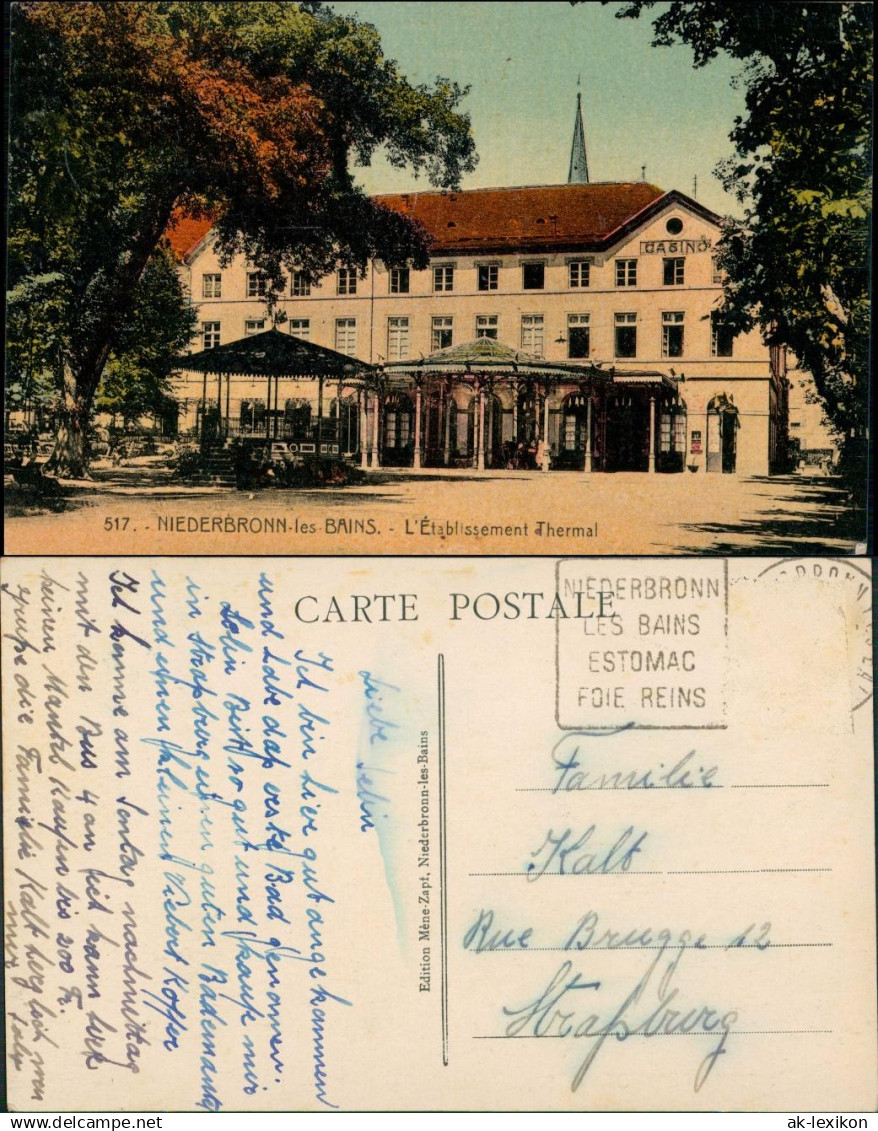 CASINO
517. - NIEDERBRONN-les-BAINS. - L'Établissement Thermal
CARTE POSTALE
NIEDERBRONN
LES BAINS
ESTOMAC
FOIE REINS
Liebe
Ich bin hier gut angekommen
und habe das erste Bad genommen.
Bist so gut und kaufe mir
in Strasburg einen guten Bademantel
und einen kleinen Koffer
Ich komme am Sontag nachmittag
mit den Bus 4 an
keinen Mantel kaufen bis 200 Fr.
Grüße die Familie Kalt herzlich von
mir
Edition Mène-Zapt, Niederbronn-les-Bains
Familie
Kalt
Rue Brugge 12
Straßburg
ak-lexikon